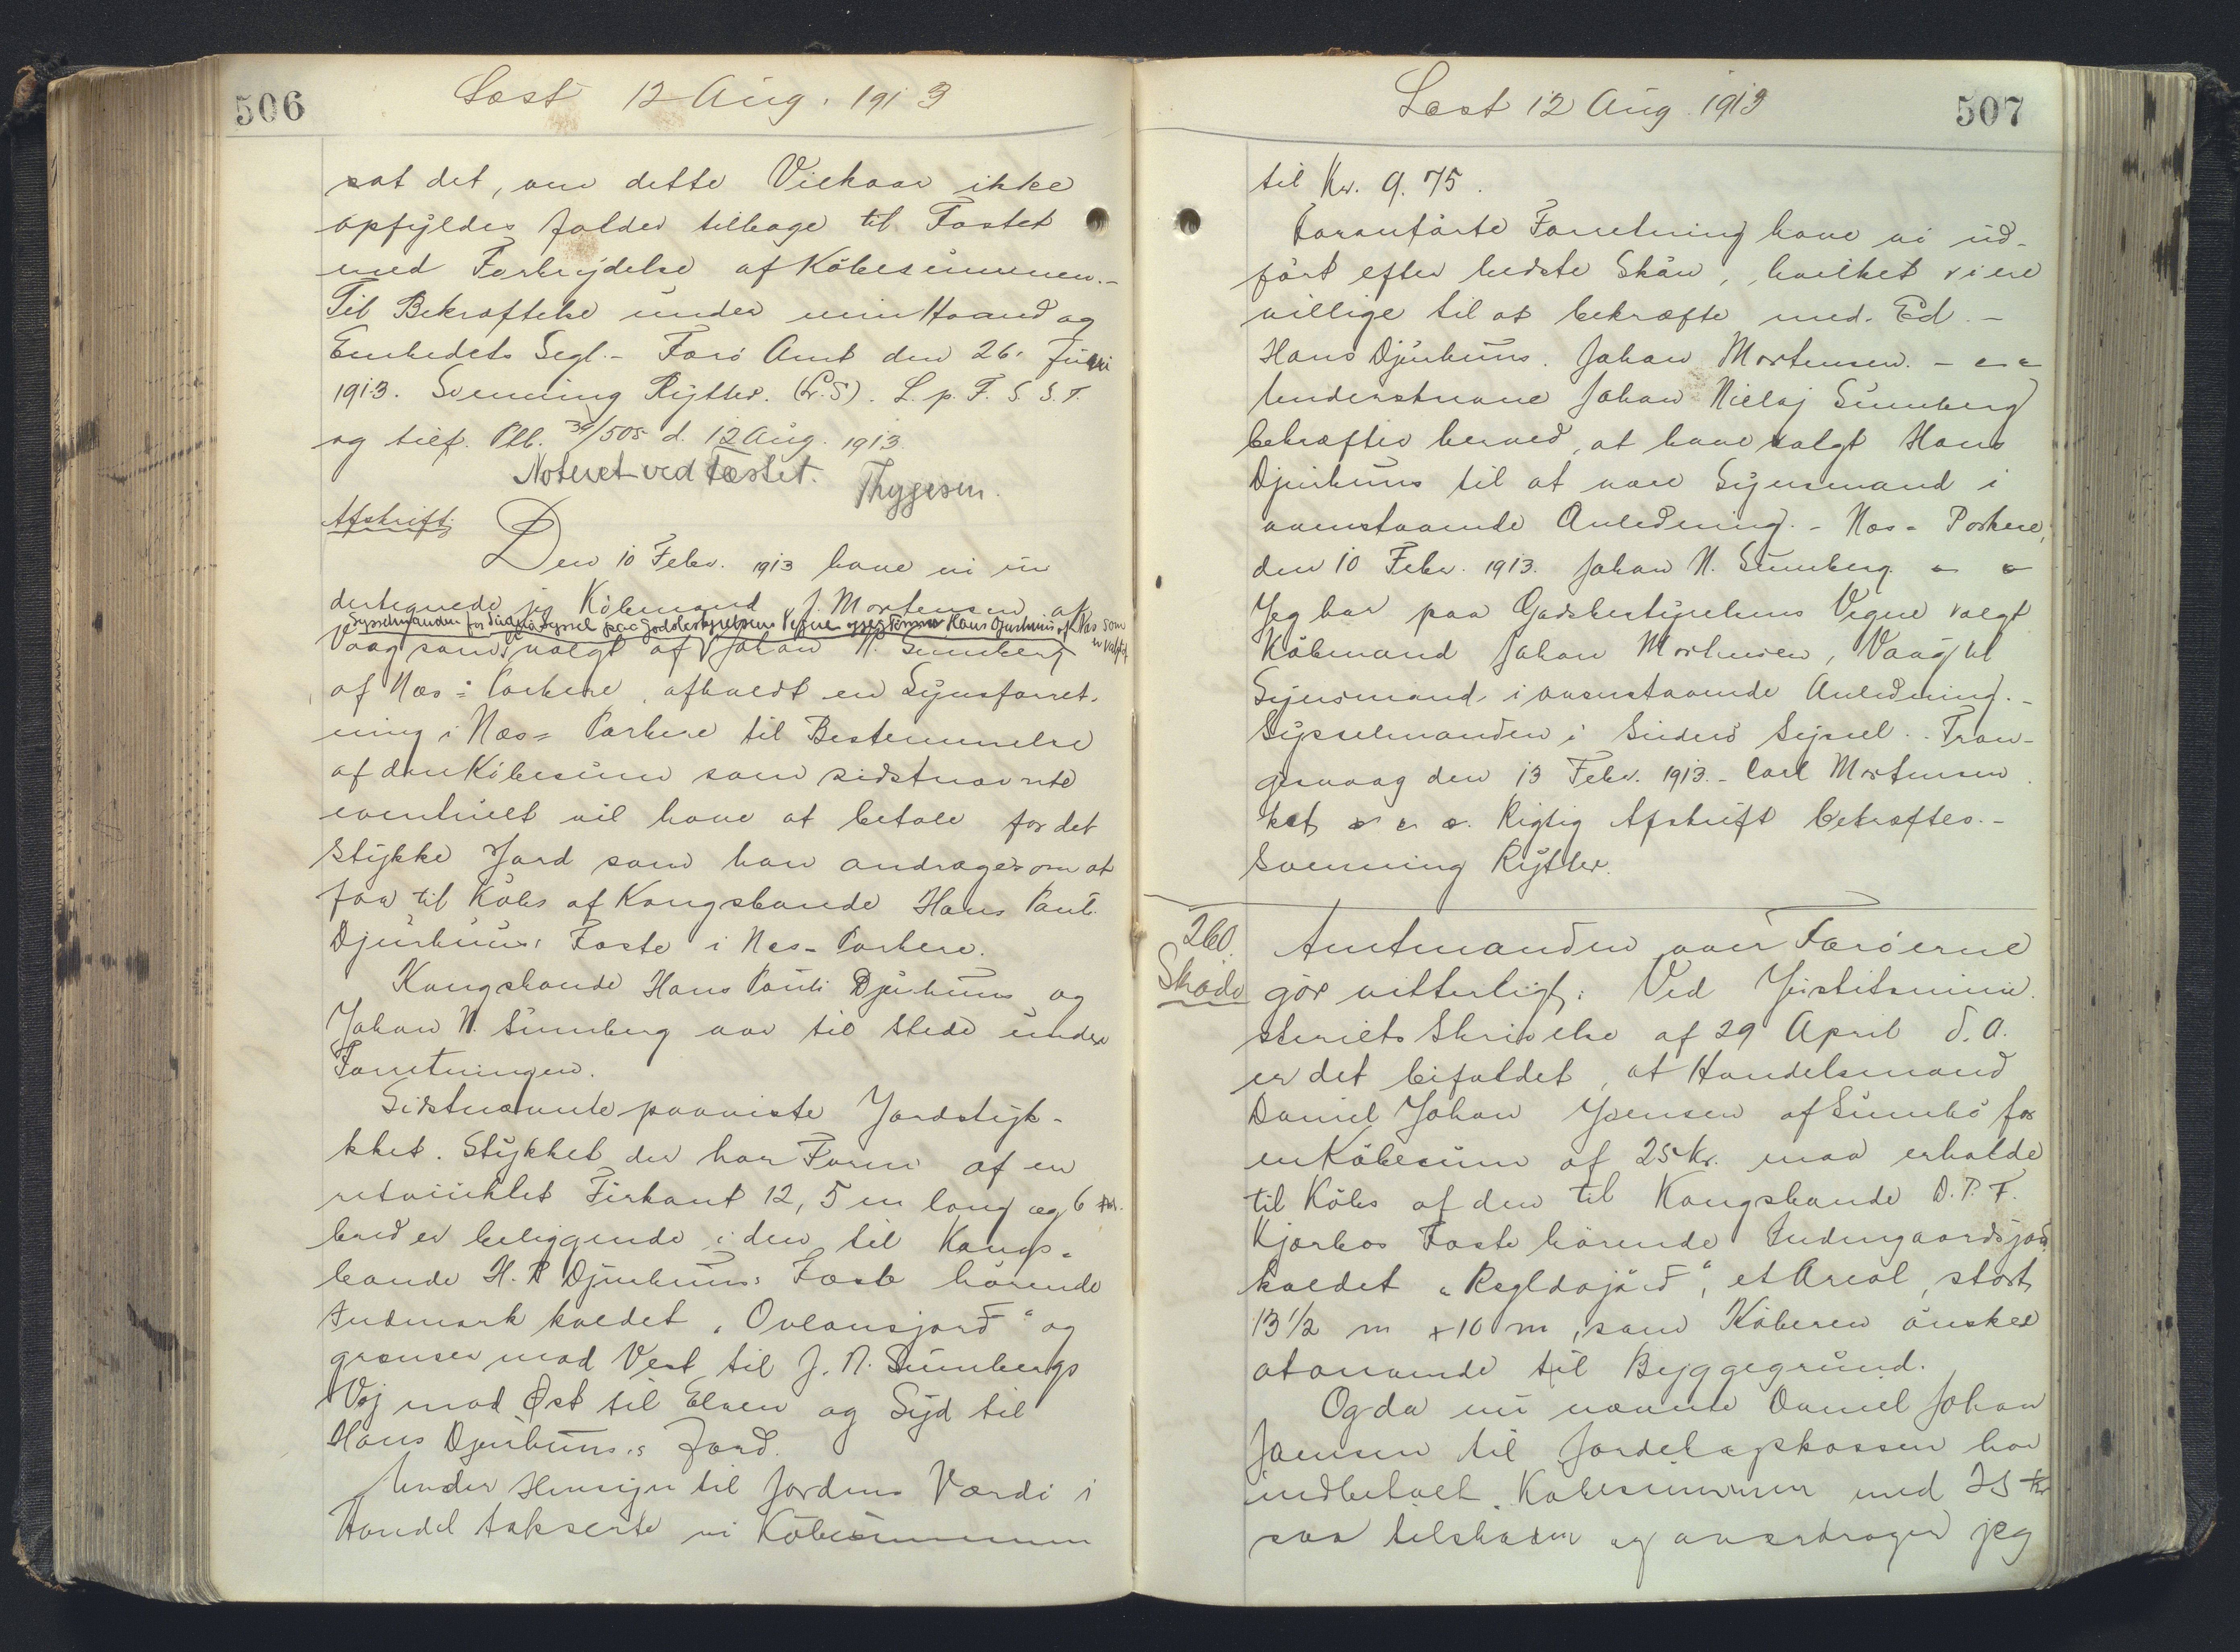 506
Læst 12 Aug. 1913
sat det, om dette Vilkaar ikke
opfyldes falder tilbage til Fæstet
med Forbrydelse af Købesummen.-
Til Bekræftelse under min Haand og
Embedets Segl.- Færø Amt den 26. Juni
1913. Svenning Rytter. (L.S). L. p. F. S. S. T.
og tilf. Ptb. 34/505 d. 12 Aug. 1913.
Noteret ved Fæstet.
Thygesen.
Afskrift.
Den 10 Febr. 1913 have vi un
dertegnede jeg Købmand J. Mortensen af
Sysselmanden for Suderø Syssel paa Godsbestyrelsens Vegne og jeg Tømrer Hans Djurhuus af Næs som
er valgt af
Vaag som valgt af Johan N. Sumberg
af Næs = Porkere, afholdt en Synsforret-
ning i Næs = Porkere til Bestemmelse
af den Købesum som sidstnævnte
eventuelt vil have at betale for det
Stykke Jord som han andrager om at
faa til Købs af Kongsbonde Hans Pauli
Djurhuus' Fæste i Næs - Porkere.
Kongsbonde Hans Pauli Djurhuus og
Johan N. Sumberg var til Stede under
Forretningen.
Sidstnævnte paaviste Jordstyk-
ket. Stykket der har Form af en
retvinklet Firkant 12,5 m lang og 6 m.
bred er beliggende i den til Kongs-
bonde H. P Djurhuus: Fæste hørende
Indmark kaldet "Ovlansjord" og
grænser mod Vest til J. N. Sumbergs
Vej mod Øst til Elven og Syd til
Hans Djurhuus.s Jord.
Under Hensyn til Jordens Værdi i
Handel takserte vi Købesummen
507
Læst 12 Aug. 1913
til Kr. 9.75.
Foranførte Forretning have vi ud-
ført efter bedste Skøn, hvilket vi ere
villige til at bekræfte med Ed.-
Hans Djurhuus. Johan Mortensen. -
Understnavne Johan Nielaj Sumberg
bekræfter herved, at have valgt Hans
Djurhuus til at være Synsmand i
ovenstaaende Anledning. - Næs - Porkere,
den 10 Febr. 1913. Johan N. Sumberg.
Jeg har paa Godsbestyrelsens Vegne valgt
Købmand Johan Mortensen, Vaag til
Synsmand i ovenstaaende Anledning.-
Sysselmanden i Suderø Syssel. Tran-
gesvaag den 13 Febr. 1913. - Carl Mortensen.
kst. Rigtig Afskrift bekræftes.-
Svenning Rytter.
260.
Skøde
Amtmanden over Færøerne
gør vitterligt: Ved Justitsmini-
steriets Skrivelse af 29 April d. A.
er det bifaldet, at Handelsmand
Daniel Johan Joensen af Sumbø for
en Købesum af 25 Kr. maa erholde
til Købs af den til Kongsbonde D. P. F.
Kjærbos Fæste hørende Indengaardsjord
kaldet "Regldajørd", et Areal, stort
13 1/2 m x 10 m, som Køberen ønsker
at anvende til Byggegrund.
Og da nu nævnte Daniel Johan
Joensen til Jordebogskassen har
indbetalt Købesummen med 25 Kr
saa tilskøder og overdrager jeg